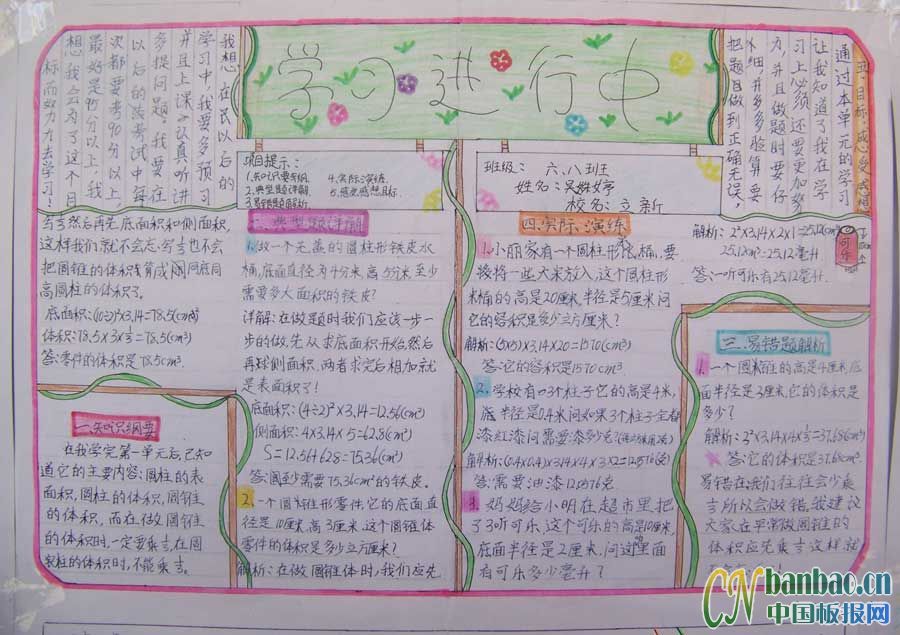 学习进行中
项目提示：
1.知识只要有纲
2.典型题详解
3.易错题解析
4.实际演练
5.感受感想目标
班级：六.八班
姓名：吴姝婷
校名：立新
一.知识纲要
在我学完第一单元后,已知
道它的主要内容:圆柱的表
面积,圆柱的体积,圆锥
的体积,而在做圆锥
的体积时,一定要乘⅓,在圆
柱的体积时,不能乘⅓.
二.典型题详解
1.做一个无盖的圆柱形铁皮水
桶,底面直径为4分米高5分米至少
需要多大面积的铁皮?
详解:在做题时我们应该一步一
步的做,先从求底面积开始,然后
再球侧面积,两者求完后相加就
是表面积了!
底面积:(4÷2)²×3.14=12.56(cm²)
侧面积:4×3.14×5=62.8(cm²)
S=12.56+62.8=75.36(cm²)
答:圆到少需要75.36cm²的铁皮.
2.一个圆锥形零件,它的底面直
径是10厘米,高3厘米,这个圆锥体
零件的体积是多少立方厘米?
解析:在做圆锥体时,我们应先
乘⅓然后再先底面积和侧面积,
这样我们就不会忘乘⅓也不会
把圆锥的体积算成同底同
高圆柱的体积了.
底面积:(10÷2)²×3.14=78.5(cm²)
体积:78.5×3×⅓=78.5(cm³)
答:零件的体积是78.5cm³.
三.易错题解析
1.一个圆锥的高是4厘米,底
面半径是3厘米,它的体积是
多少?
解析:2²×3.14×4×⅓=37.68(cm³)
答:它的体积是37.68cm³.
易错在我们往往会少乘
⅓所以会做错,我建议
大家在平常做圆锥的
体积应先乘⅓这样就
四.实际.演练
1.小丽家有一个圆柱形米桶,要
接将一些大米放入,这个圆柱形
米桶的高是20厘米,半径是5厘米问
它的容积是多少立方厘米?
解析:(5×5)×3.14×20=1570(cm³)
答:它的容积是1570cm³.
2.学校有3个柱子它的高是4米,
底半径是0.4米问如果3个柱子全都
漆红漆问需要漆多少克?
解析:(0.4×0.4)×3.14×4×3×2=12.0576(克)
答:需要油漆12.0576克.
3.妈妈给小明在超市里把
了3听可乐,这个可乐的高是10厘米,
底面半径是2厘米,问这里面
有可乐多少毫升?
解析:2²×3.14×2×1=25.12(cm³)
25.12cm³=25.12毫升
答:一听可乐有25.12毫升.
可乐
五.目标.感受.感想
通过本单元的学习
让我知道了我在学
习上必须还要更加努
力,并且做题时要仔
细,并多多验算要
把题目做到正确无误,
我想,在我以后的
学习中,我要多预习
并且上课认真听讲
多提问题,我要在
以后的法考试中每
次都要考90分以上,
最好是95分以上,我
想我会为了这个目
标而努力去学习!
CN banbao.cn
中国板报网